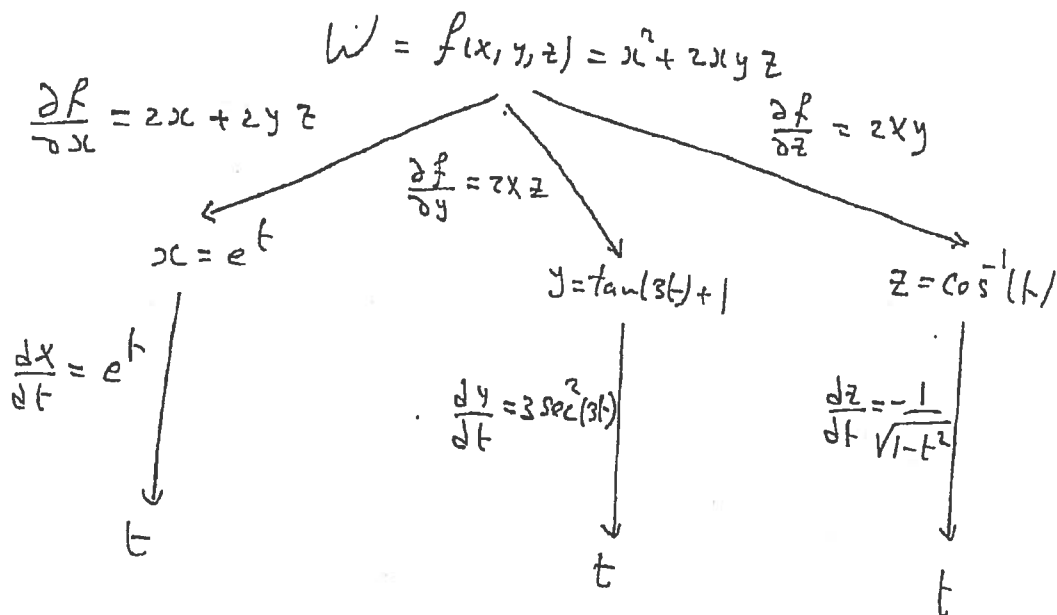 W = f(x, y, z) = x² + 2xyz
∂f/∂x = 2x + 2yz
∂f/∂z = 2xy
∂f/∂y = 2xz
x = e^t
y = tan(3t) + 1
z = cos⁻¹(t)
dx/dt = e^t
dy/dt = 3 sec²(3t)
dz/dt = -1/√(1-t²)
t
t
t